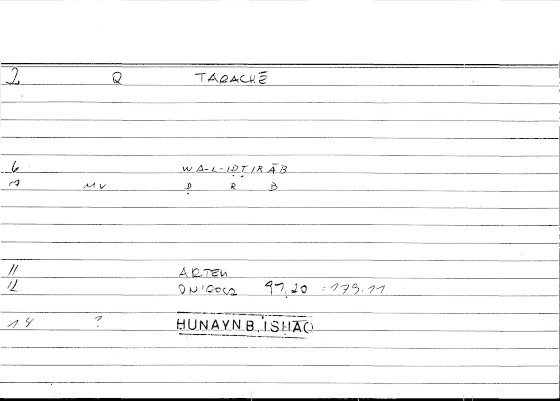 2 Q TARACHĒ
6 WA-L-IḌṬIRĀB
7 MV Ḍ R B
11 ARTEM
12 ONIROCR 97,20 = 175.11
14 ? HUNAYN B. ISHAQ